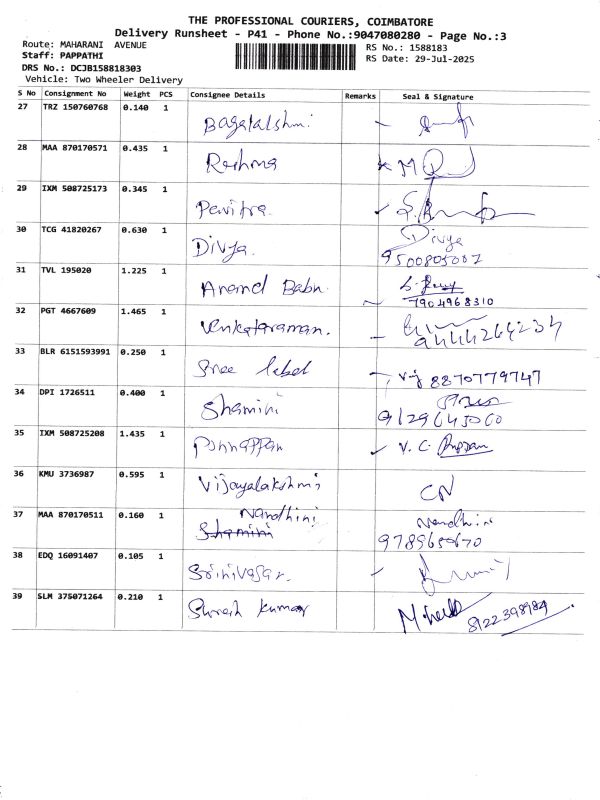 THE PROFESSIONAL COURIERS, COIMBATORE
Delivery Runsheet - P41 - Phone No.:9047080280 - Page No.:3
Route: MAHARANI AVENUE
RS No.: 1588183
Staff: PAPPATHI
RS Date: 29-Jul-2025
DRS No.: DCJB158818303
Vehicle: Two Wheeler Delivery
S No Consignment No Weight PCS Consignee Details Remarks Seal & Signature
27 TRZ 150760768 0.140 1 Bagalalshmi
28 MAA 870170571 0.435 1 Reshma
29 IXM 508725173 0.345 1 Pavitra.
30 TCG 41820267 0.630 1 Divya. Divya
9500805002
31 TVL 195020 1.225 1 Anand Babu.
7904968310
32 PGT 4667609 1.465 1 Venkataraman.
9444264234
33 BLR 6151593991 0.250 1 Sree label
8870779747
34 DPI 1726511 0.400 1 Shamini
9129645060
35 IXM 508725208 1.435 1 Ponnappan V. C.
36 KMU 3736987 0.595 1 Vijayalakshmi CN
37 MAA 870170511 0.160 1 Nandhini Nandhini
Shamini 9789650670
38 EDQ 16091407 0.105 1 Srinivasan.
39 SLM 375071264 0.210 1 Suresh kumar
8122398984